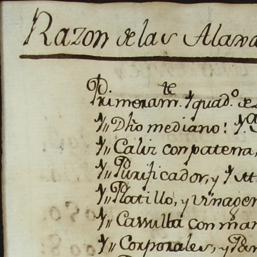 Razon de las Alaxa
Primeram.te Yquad.o de
Y,, Dho mediano: Y
Y,, Caliz con patena,
Y,, Purificador, y
Y,, Platillo, y vinagen
Y,, Casulla con man
Y,, Corporales, y